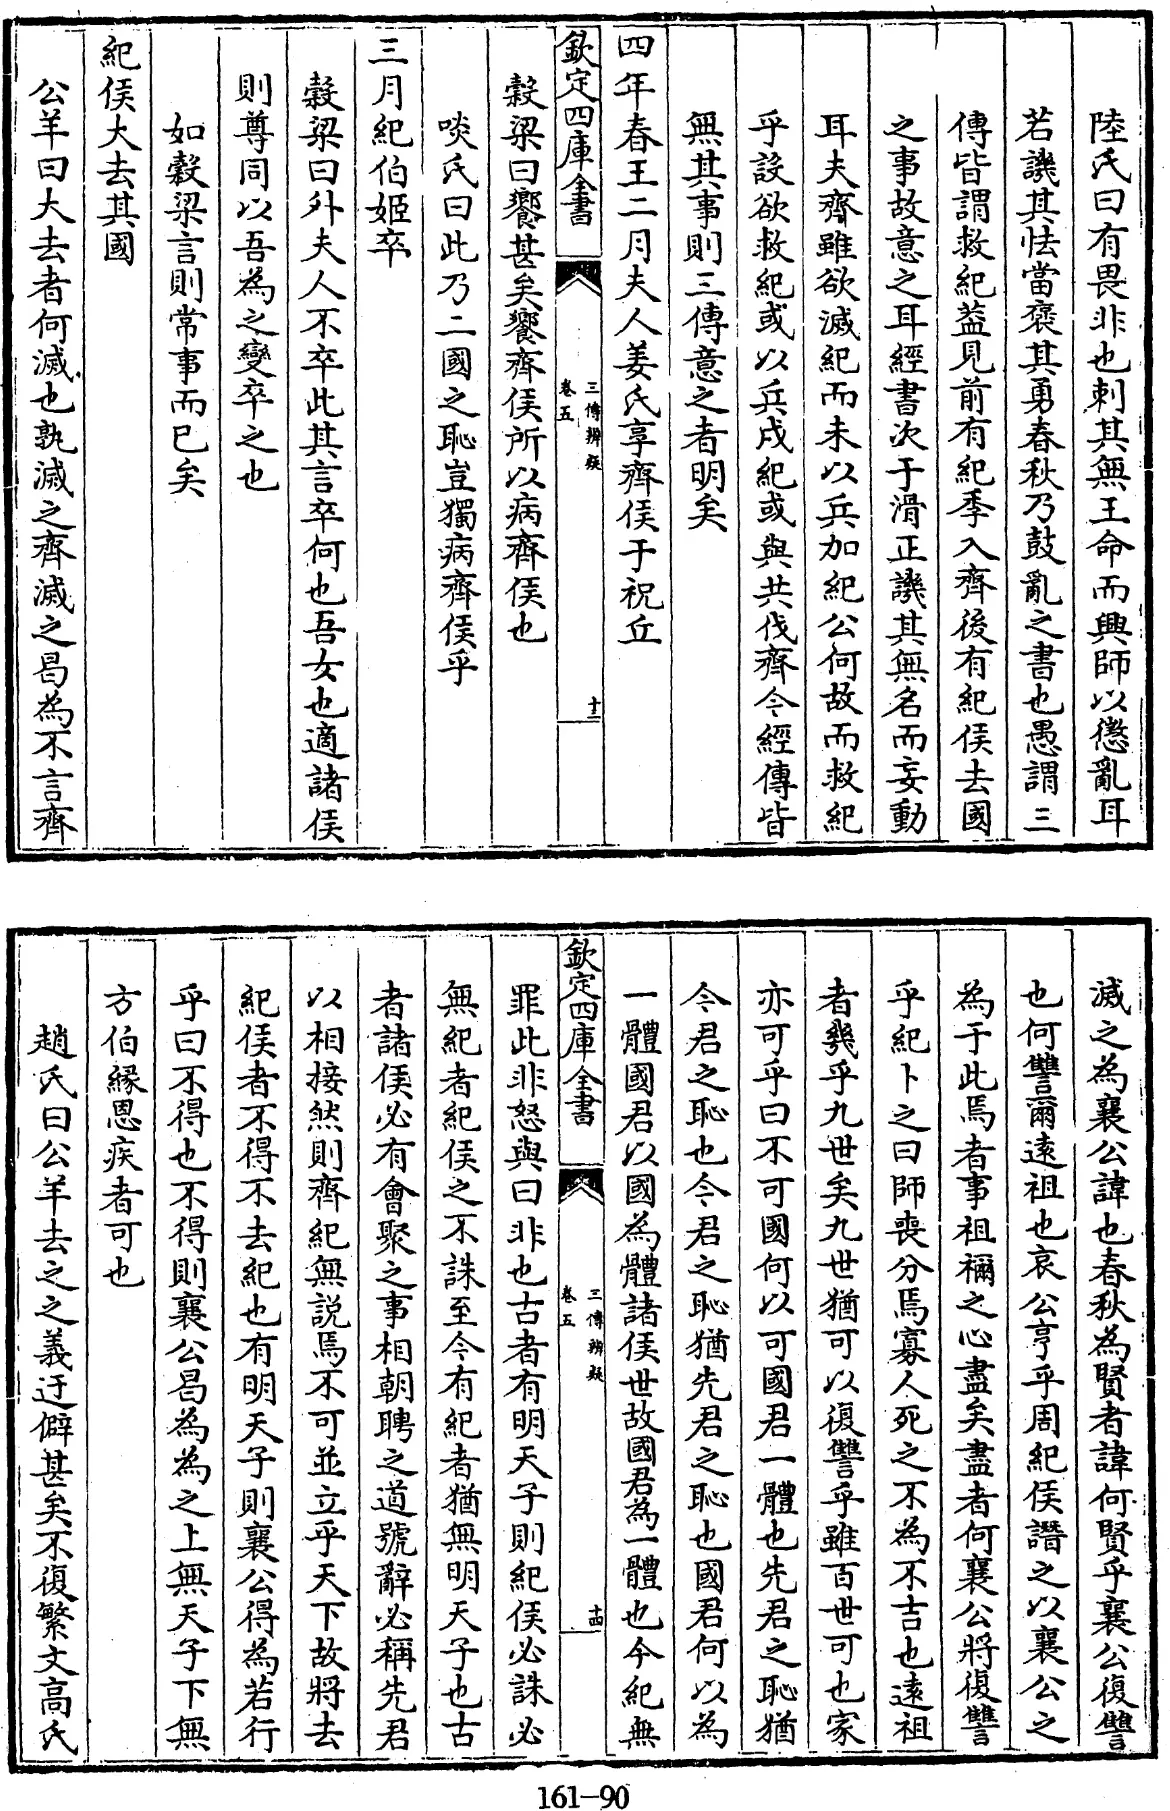 陸氏曰有畏非也刺其無王命而興師以懲亂耳
若譏其怯當褒其勇春秋乃鼓亂之書也愚謂三
傳皆謂救紀葢見前有紀季入齊後有紀侯去國
之事故意之耳經書次于滑正譏其無名而妄動
耳夫齊雖欲滅紀而未以兵加紀公何故而救紀
乎設欲救紀或以兵戍紀或與共伐齊今經傳皆
無其事則三傳意之者明矣
四年春王二月夫人姜氏享齊侯于祝丘
欽定四庫全書
三傳辨疑
卷五
十三
穀梁曰饗甚矣饗齊侯所以病齊侯也
啖氏曰此乃二國之恥豈獨病齊侯乎
三月紀伯姬卒
穀梁曰外夫人不卒此其言卒何也吾女也適諸侯
則尊同以吾為之變卒之也
如穀梁言則常事而已矣
紀侯大去其國
公羊曰大去者何滅也孰滅之齊滅之曷為不言齊
滅之為襄公諱也春秋為賢者諱何賢乎襄公復讐
也何讐爾遠祖也哀公亨乎周紀侯譖之以襄公之
為于此焉者事祖禰之心盡矣盡者何襄公將復讐
乎紀卜之曰師喪分焉寡人死之不為不吉也遠祖
者幾乎九世矣九世猶可以復讐乎雖百世可也家
亦可乎曰不可國何以可國君一體也先君之恥猶
今君之恥也今君之恥猶先君之恥也國君何以為
一體國君以國為體諸侯世故國君為一體也今紀無
欽定四庫全書
三傳辨疑
卷五
十四
罪此非怒與曰非也古者有明天子則紀侯必誅必
無紀者紀侯之不誅至今有紀者猶無明天子也古
者諸侯必有會聚之事相朝聘之道號辭必稱先君
以相接然則齊紀無說焉不可並立乎天下故將去
紀侯者不得不去紀也有明天子則襄公得為若行
乎曰不得也不得則襄公曷為為之上無天子下無
方伯緣恩疾者可也
趙氏曰公羊去之之義迂僻甚矣不復繁文高氏
161-90